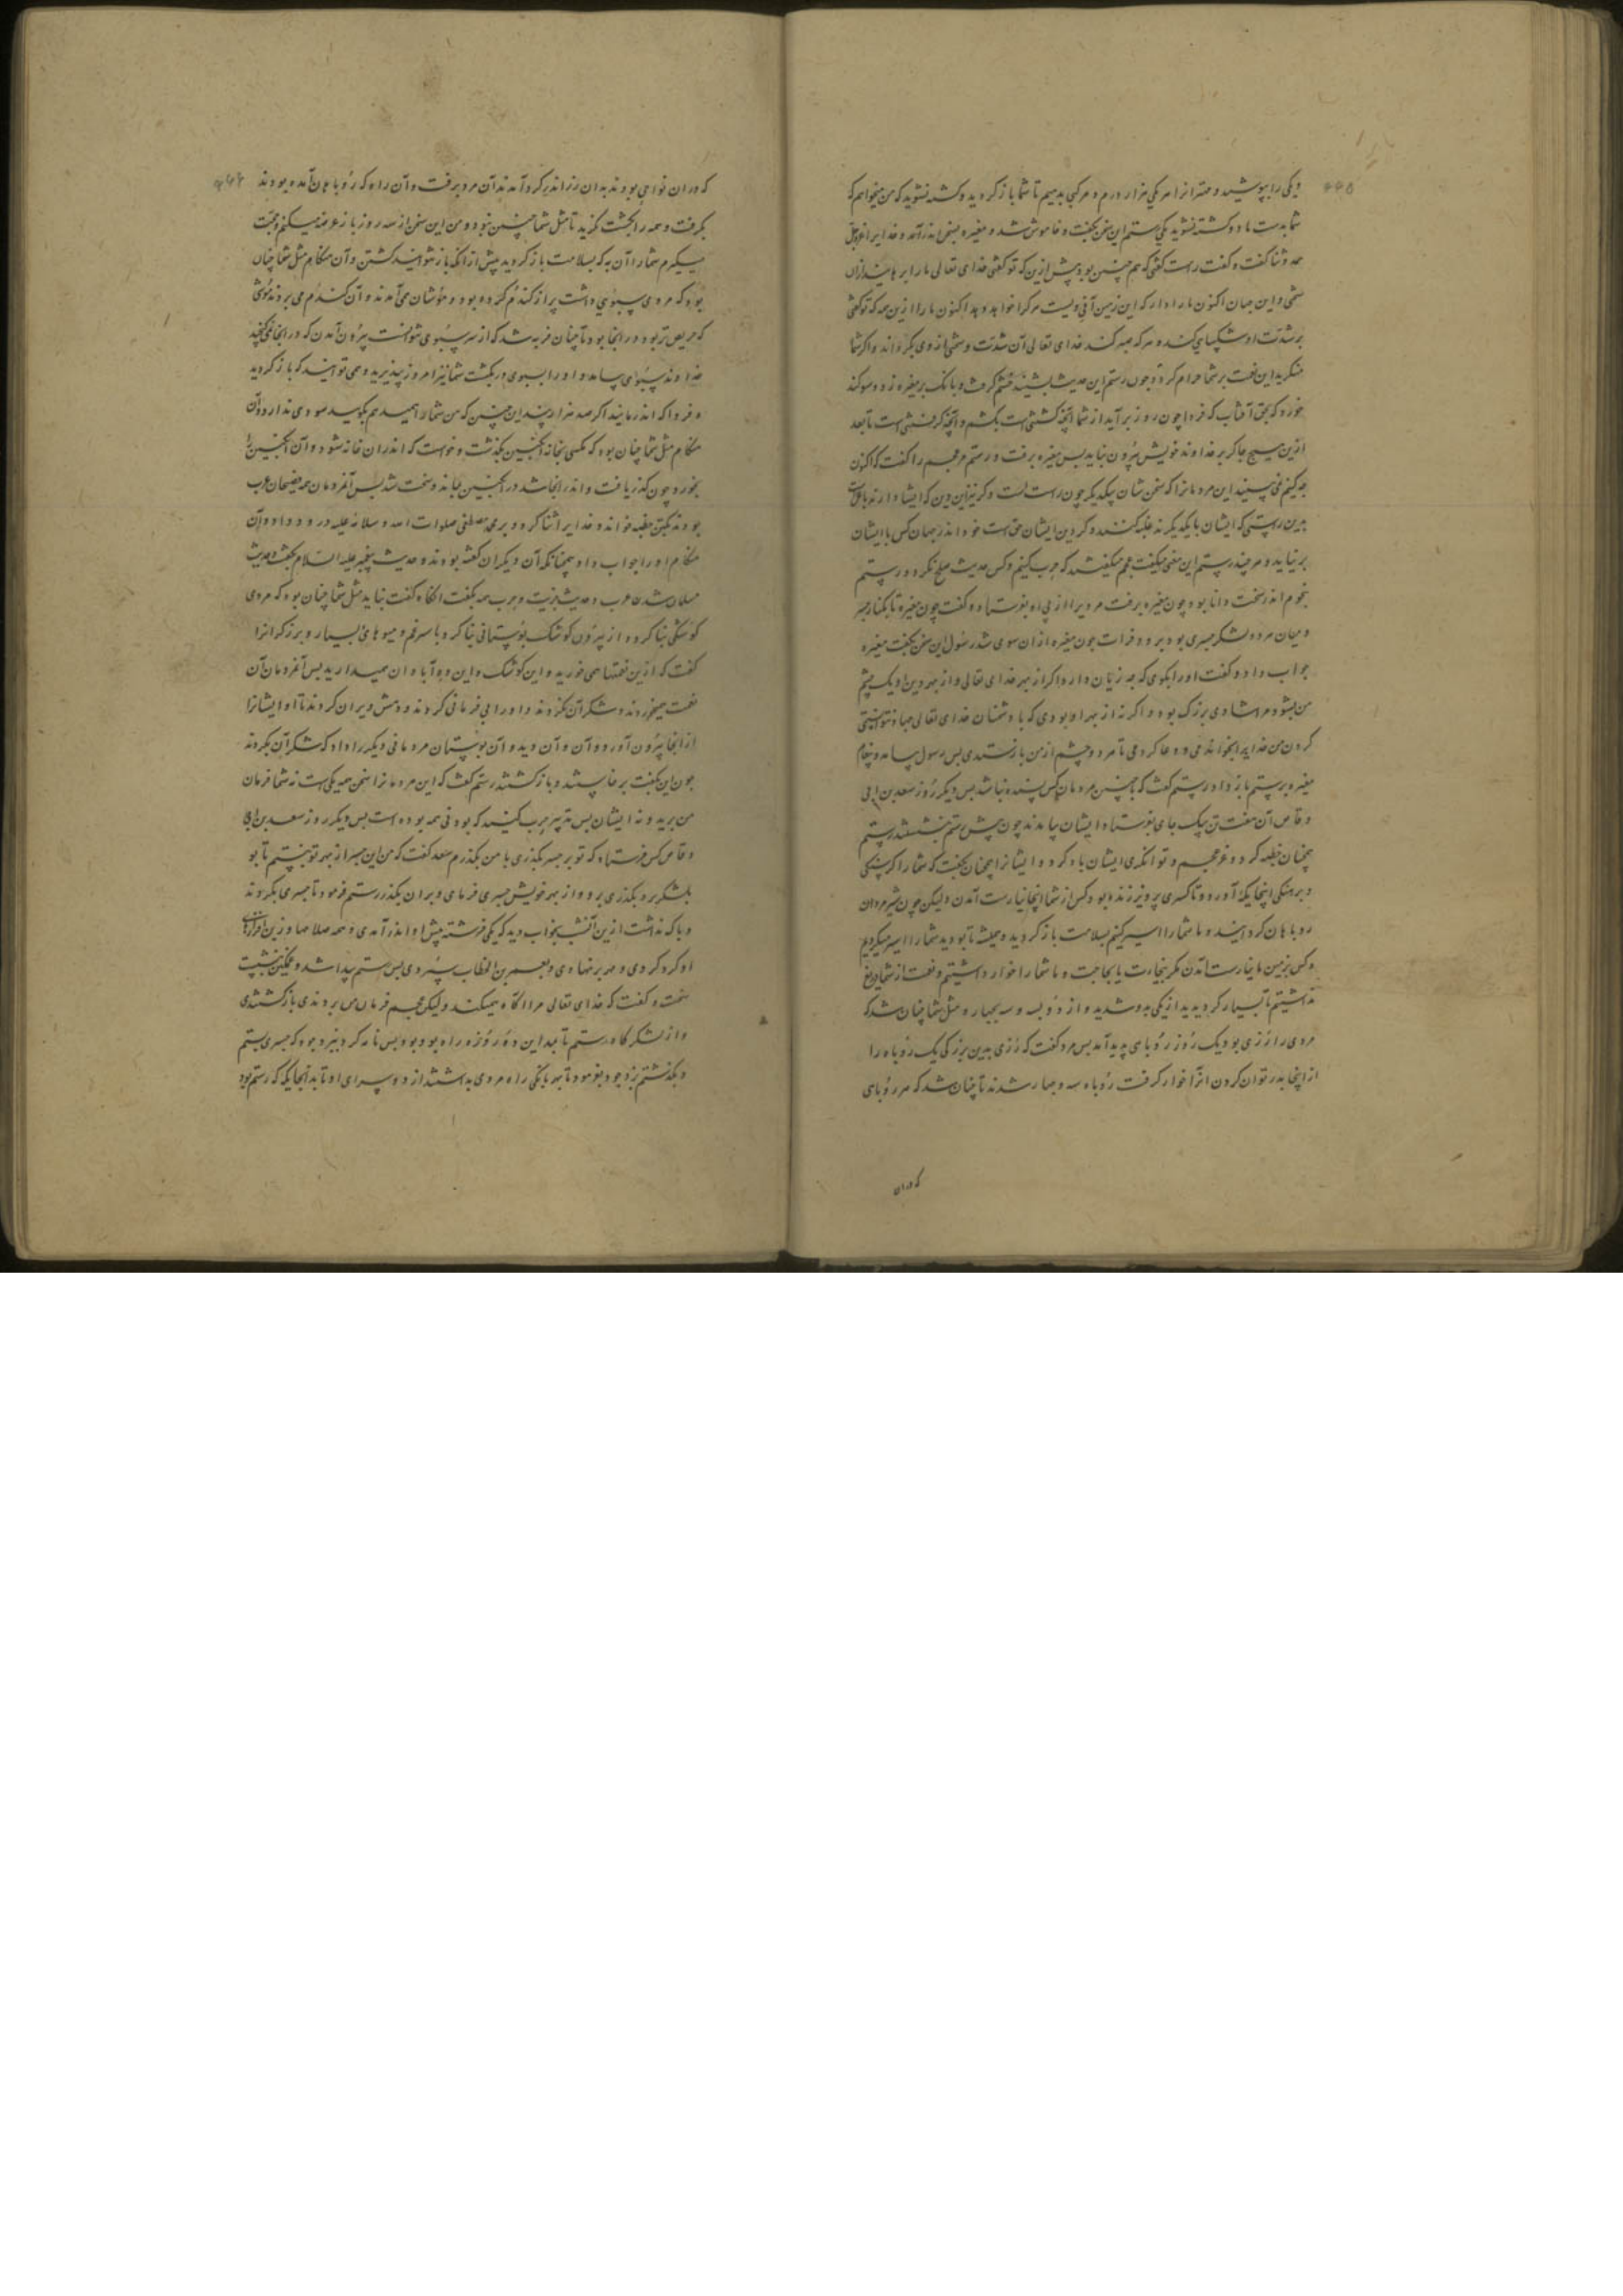 و یکی را بپوشید و مهتر از امر یکی هزار درم و مرکبی بدهیم تا شما باز کردید و کشته نشوید که من میخواهم که
شما بدست ما کشته نشوید یکی رستم این سخن بکفت و خاموش شد و مغیره بسخن اندر آمد و خدایرا عزوجل
حمد و ثنا کفت و کفت راست کفتی که هم چنین بود پیش ازین که تو کفتی خدای تعالی ما را برهانید از آن
سختی و این جهان اکنون ما را داد که این زمین آفریدست هرکرا خواهد دهد اکنون ما را ازین همه که تو کفتی
بر شدت او شکیبایی کنند و هر که صبر کند خدای تعالی آن شدت و سختی از وی بکرداند و اکر شما
منکرید این نعمت بر شما حرام کرد چون رستم این حدیث بشنید خشم کرفت و بانک بر مغیره زد و سوکند
خورد که بحق آفتاب که فردا چون روز برآید از شما آنچه کشتنی است بکشم و آنچه کرفتنی است تا بعد
ازین هیچ جاکر بر خداوند خویش بیرون نیاید پس مغیره برفت و رستم مر عجم را کفت که اکنون
چه کنیم نمی بینید این مردمانرا که سخن شان بیکدیکر چون راست است و کر نیز این دین که ایشان دارند باطل است
بدین راستی که ایشان با یکدیکرند غلبه کنند و کر دین ایشان حق است خود اندر جهان کس با ایشان
برنیاید و هر چند رستم این معنی میکفت عجم میکفتند که حرب کنیم و کس حدیث صلح نکرد و رستم
بنجوم اندر سخت دانا بود چون مغیره برفت مردیرا از پی او بفرستاد و کفت چون مغیره تا بکنار جسر
و میان هر دو لشکر جسری بود بر رود فرات چون مغیره از آن سوی شد رسول این سخن بکفت مغیره
جواب داد و کفت او را بکوی که چه زیان دارد اکر از بهر خدای تعالی و از بهر دین او یک چشم
من بشود مرا شادی بزرک بود و اکر نه از بهر او بودی که با دشمنان خدای تعالی جهاد نتوانستمی
کردن من خدایرا بخواندمی و دعا کردمی تا هر دو چشم از من بازستدی پس رسول بیامد و پیغام
مغیره برستم باز داد رستم کفت که چنین مردمان کس بسنده نباشد پس دیکر روز سعد بن ابی
وقاص آن هفت تن بیک جای بفرستاد ایشان بیامدند چون پیش رستم بنشستند رستم
همچنان خطبه کرد و عز عجم و توانکری ایشان یاد کرد و ایشانرا همچنان بکفت که شما را کرسنکی
و برهنکی اینجایکه آورد و تا کسری پرویز زنده بود کس از شما اینجا نیارست آمدن ولیکن چون شیر مردان
روباهان کردانید و ما شما را اسیر کنیم بسلامت باز کردید و همیشه تا بودید شما را اسیر میکردیم
و کس بزمین ما نیارست آمدن مکر بتجارت یا بحاجت و ما شما را خوار داشتیم و نعمت از شما دریغ
نداشتیم تا بسیار کردیدید از یکی بدو شدید و از دو بسه و سه بچهار و مثل شما چنان شد که
مردی را رزی بود یک روز روباهی پدید آمد پس مرد کفت که رزی بدین بزرکی یک روباه را
از اینجا بدر توان کردن آنرا خوار کرفت روباه سه و چهار شدند تا چنان شد که هر روباهی
که دران
که دران نواحی بودند بدان رز اندر کرد آمدند آن مرد برفت و آن راه که روباهان آمده بودند
بکرفت و همه را بکشت نکرید تا مثل شما چنین نبود و من این سخن از سه روز باز عرضه میکنم و حجت
میکیرم شما را آن به که بسلامت باز کردید پیش از انکه باز نتوانید کشتن و آن هنکام مثل شما چنان
بود که مردی سبویی داشت پر از کندم کرده بود و موشان می آمدند و آن کندم می بردند موشی
که حریص تر بود در انجا بود تا چنان فربه شد که از سر سبوی نتوانست بیرون آمدن که در انجا نمی کنجید
خداوند سبوی بیامد و او را بسبوی در بکشت شما نیز امروز بپذیرید و همی توانید که باز کردید
و فردا که اندر مانید اکر صد هزار چندین چنین که من شما را همیدهم بکویید سودی ندارد و آن
هنکام مثل شما چنان بود که مکسی بخانه انکبین بکذشت و خواست که اندران خانه شود و آن انکبین را
بخورد چون کذر یافت و اندر انجا شد در انکبین بماند و سخت شد پس آخر مردمان همه فصیحان عرب
بودند یکتن خطبه خواند و خدایرا ثنا کرد و بر محمد مصطفی صلوات الله و سلامه علیه درود داد و آن
هنکام او را جواب داد همچنانکه آن دیکران کفته بودند و حدیث پیغمبر علیه السلام بکفت و حدیث
مسلمان شدن عرب و حدیث جزیت و حرب همه بکفت انکاه کفت نباید مثل شما چنان بود که مردی
کوشکی بنا کرد و از بیرون کوشک بوستانی بنا کرد با سپرغم و میوهای بسیار و برزکرانرا
کفت که ازین نعمتها همی خورید و این کوشک و این ده آبادان همیدارید پس آخر مردمان آن
نعمت میخوردند و شکر آن نکردند و او را بی فرمانی کردند و دهش ویران کردند تا او ایشانرا
از انجا بیرون آورد و آن ده و آن بوستان مردمانی دیکر را داد که شکر آن بکردند
چون این بکفت برخاستند و باز کشتند رستم کفت که این مردمانرا سخن همه یکیست نه شما فرمان
من برید و نه ایشان پس تدبیر حرب کنید که بودنی همه بوده است پس دیکر روز سعد بن ابی
وقاص کس فرستاد که تو بر جسر بکذری یا من بکذرم سعد کفت که من این جسر از بهر تو نبستم تا تو
بلشکر برو بکذری برو و از بهر خویش جسری فرمای و بران بکذر رستم فرمود تا جسری بکردند
و باک نداشت ازین آن شب بخواب دید که یکی فرشته پیش او اندر آمدی و همه سلاحها و زین افزارهای
او کرد کردی و مهر برنهادی و بعمر بن الخطاب سپردی پس رستم بیدار شد و غمکین بنشست
سخت و کفت که خدای تعالی مرا آکاه همیکند ولیکن عجم فرمان من بردندی باز کشتندی
و از لشکرکاه رستم تا بمداین ده روزه راه بود و پس نامه کرد بیزدجرد که جسری بستم
و بکذشتم یزدجرد بفرمود تا بهر بانکی راه مردی بداشتند از در سرای او تا بدانجایکه که رستم بود